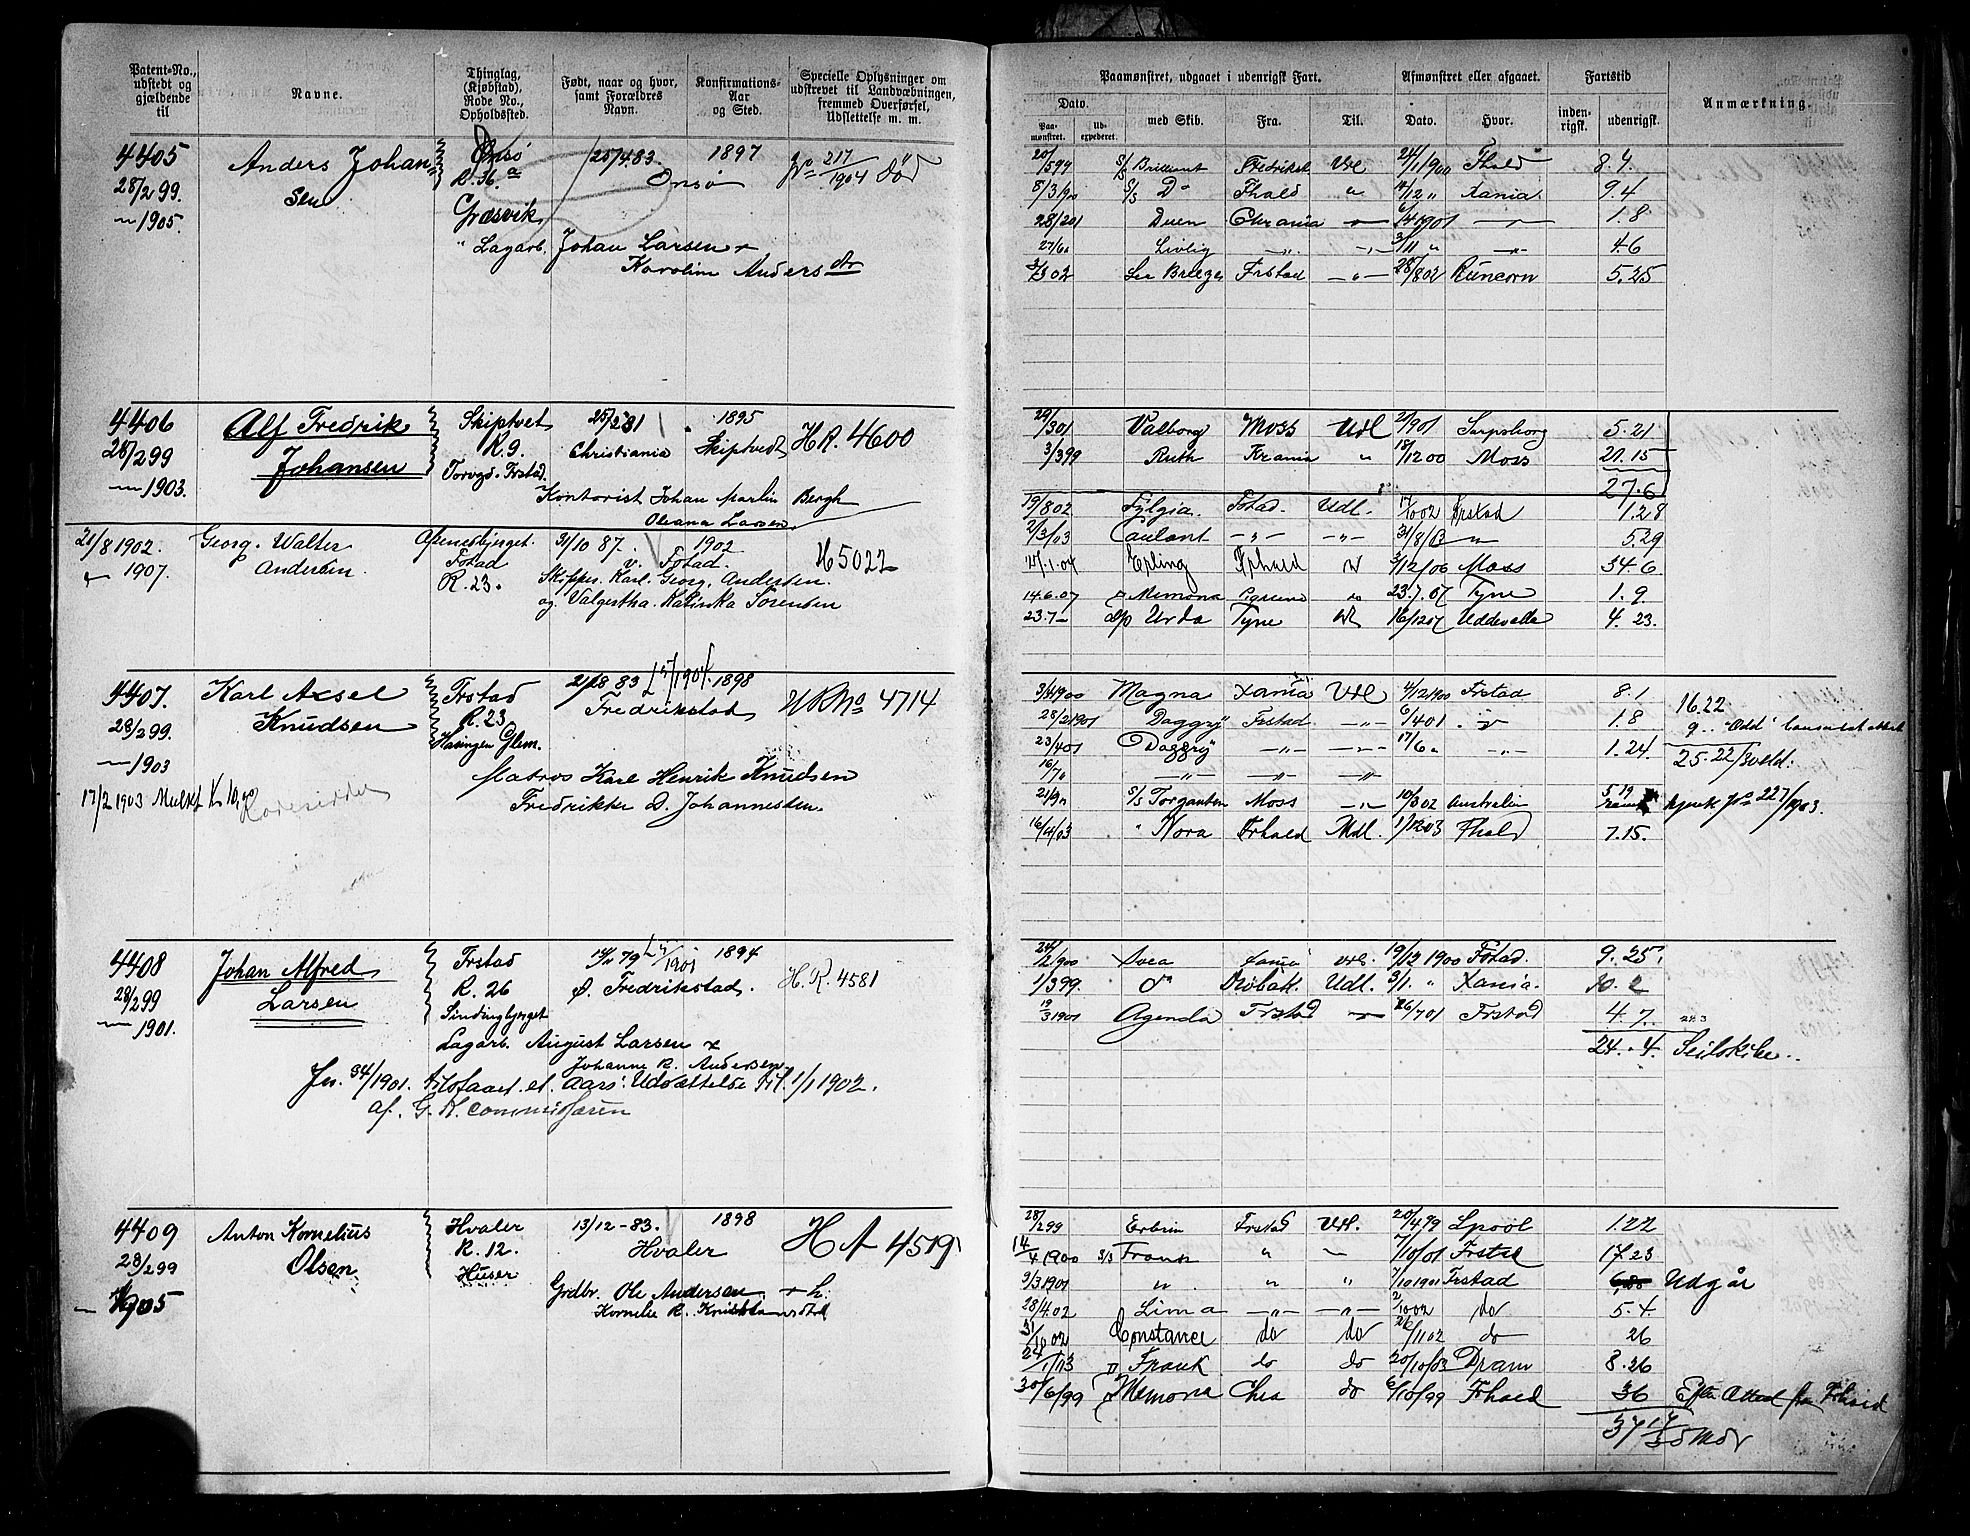 Patent-No., udstedt og gjældende til
Navne.
Thinglag, (Kjøbstad), Rode No., Opholdssted.
Født, naar og hvor, samt Forældres Navn.
Konfirmations-Aar og Sted.
Specielle Oplysninger om udskrevet til Landvæbningen, fremmed Overførsel, Udslettelse m. m.
4405 Anders Johan- Onsø 25/4.83. 1897 Jno 217/1904 død
28/2 99. sen R. 36.a Onsø
— 1905. Græsvik
" Lagarb. Johan Larsen +
Karolin Andersdtr
4406 Alf Fredrik Skiptvet 25/2 81 1895 H R. 4600
28/2 99 Johansen R. 9. Christiania Skiptvedt
— 1903. Torvgd. Frstad.
Kontorist Johan Martin Bergh
Oleana Larsen.
21/8 1902. Georg. Walter Apenesbjerget. 31/10 87. 1902 H 5022
— 1907. Andersen. Fstad v. Fstad.
R. 23. Skipper. Karl. Georg. Andersen.
og. Valgertha. Katinka Sørensen
4407. Karl Axsel Frstad 21/8 83 1898 HRNo 4714
28/2 99. Knudsen R. 23. Fredrikstad
— 1903 Glem.
Matros Karl Henrik Knudsen
17/2 1903 Mulkt K 10,00 Fredrikke D. Johannessen.
4408 Johan Alfred Frstad 1894 H. R. 4581
28/2 99 Larsen R. 26 Fredrikstad.
— 1901. Sindingbjerget
Lagarb. August Larsen +
Johanne R. Andersen
Jn. 34/1901. tilstaaet. et. Aars. Udsættelse til 1/1 1902.
af. G. K. commissæren
4409 Anton Kornelius Hvaler 13/12-83. 1898 H R 4519
28/2 99 Olsen R. 12. Hvaler
— 1905 Huser
Grdbr. Ole Andersen + h.
Kornelie R. Kristiansdtd
Paamønstret, udgaaet i udenrigsk Fart.
Afmønstret eller afgaaet.
Fartstid
Anmærkning.
Dato.
Paa-mønstret. Ud-expederet. med Skib. Fra. Til. Dato. Hvor. inden-rigsk. udenrigsk.
20/5 99 S/S Brilliant Fredrikst Udl 24/1 1900 Fhald 8 4.
8/3 90 S/S Do Fhald " 4/12 " Xania. 9 4
28/2 01 Duen Chrania 6/4 1901 1. 8
27/6 " Livlig —"— —"— 3/11 " —"— 4 6
3/3 02 Sea Breeze Frstad —"— 28/8 02 Runcorn 5. 25
29/3 01 Valborg Moss Udl 2/9 01 Sarpsborg 5. 21
3/3 99 Ruth Krania " 18/12 00 Moss 21. 15
27. 6
19/8 02 Fylgia. Fstad. Udl. 17/10 02 Frstad 1. 28
2/3/03 —"— —"— 31/8/03 " 5. 29
Erling Frhald 3/12/06 Moss 34. 6
14.6.07 Memona " 23.7.07 Tyne 1. 9.
23.7 — D/p Urda Tyne 16/12 07 Uddevalla 4. 23.
Magna Xania Udl 4/12 1900 Frstad 8. 1 16. 22
28/2 1901 Daggry Frstad —"— 6/4 01 1. 8 9.. "Odd"
23/4 01 Daggry —"— —"— 17/6 " —"— 1. 24. 25. 22
16/7 " —"— —"— —"—
21/9 " S/S Torgauten Moss —"— 10/3 02 Australien 5 19 227/1903.
16/4/03 " Nora Frhald Udl. 1/12 03 Fhald 7. 15.
Svea Xania Udl. 19/12 1900 Fstad. 9. 25.
1/3 99. do Drøbak Udl. 3/1. " Xania. 10. 2
19/3 1901 Agenda Frstad 26/7 01 Frstad 4. 7.
24. 4. Seilskibe..
28/2 99 Frstad Udl. 20/4 99 Lpool 1. 22
14/4 1900 S/S " 7/10/01 Frstd 17. 23
9/3 1901 " " " 7/10 1901 Frstad Udgår
28/4. 02 Lima —"— —"— 2/10 02 do 5. 4.
31/10 02 Constance do do 26/11 02 do 26
Frank do do 20/10/03 Dram 8. 26
30/6/99 Memona do 6/10/99 Fhald 36 Efter Attest fra Fhald